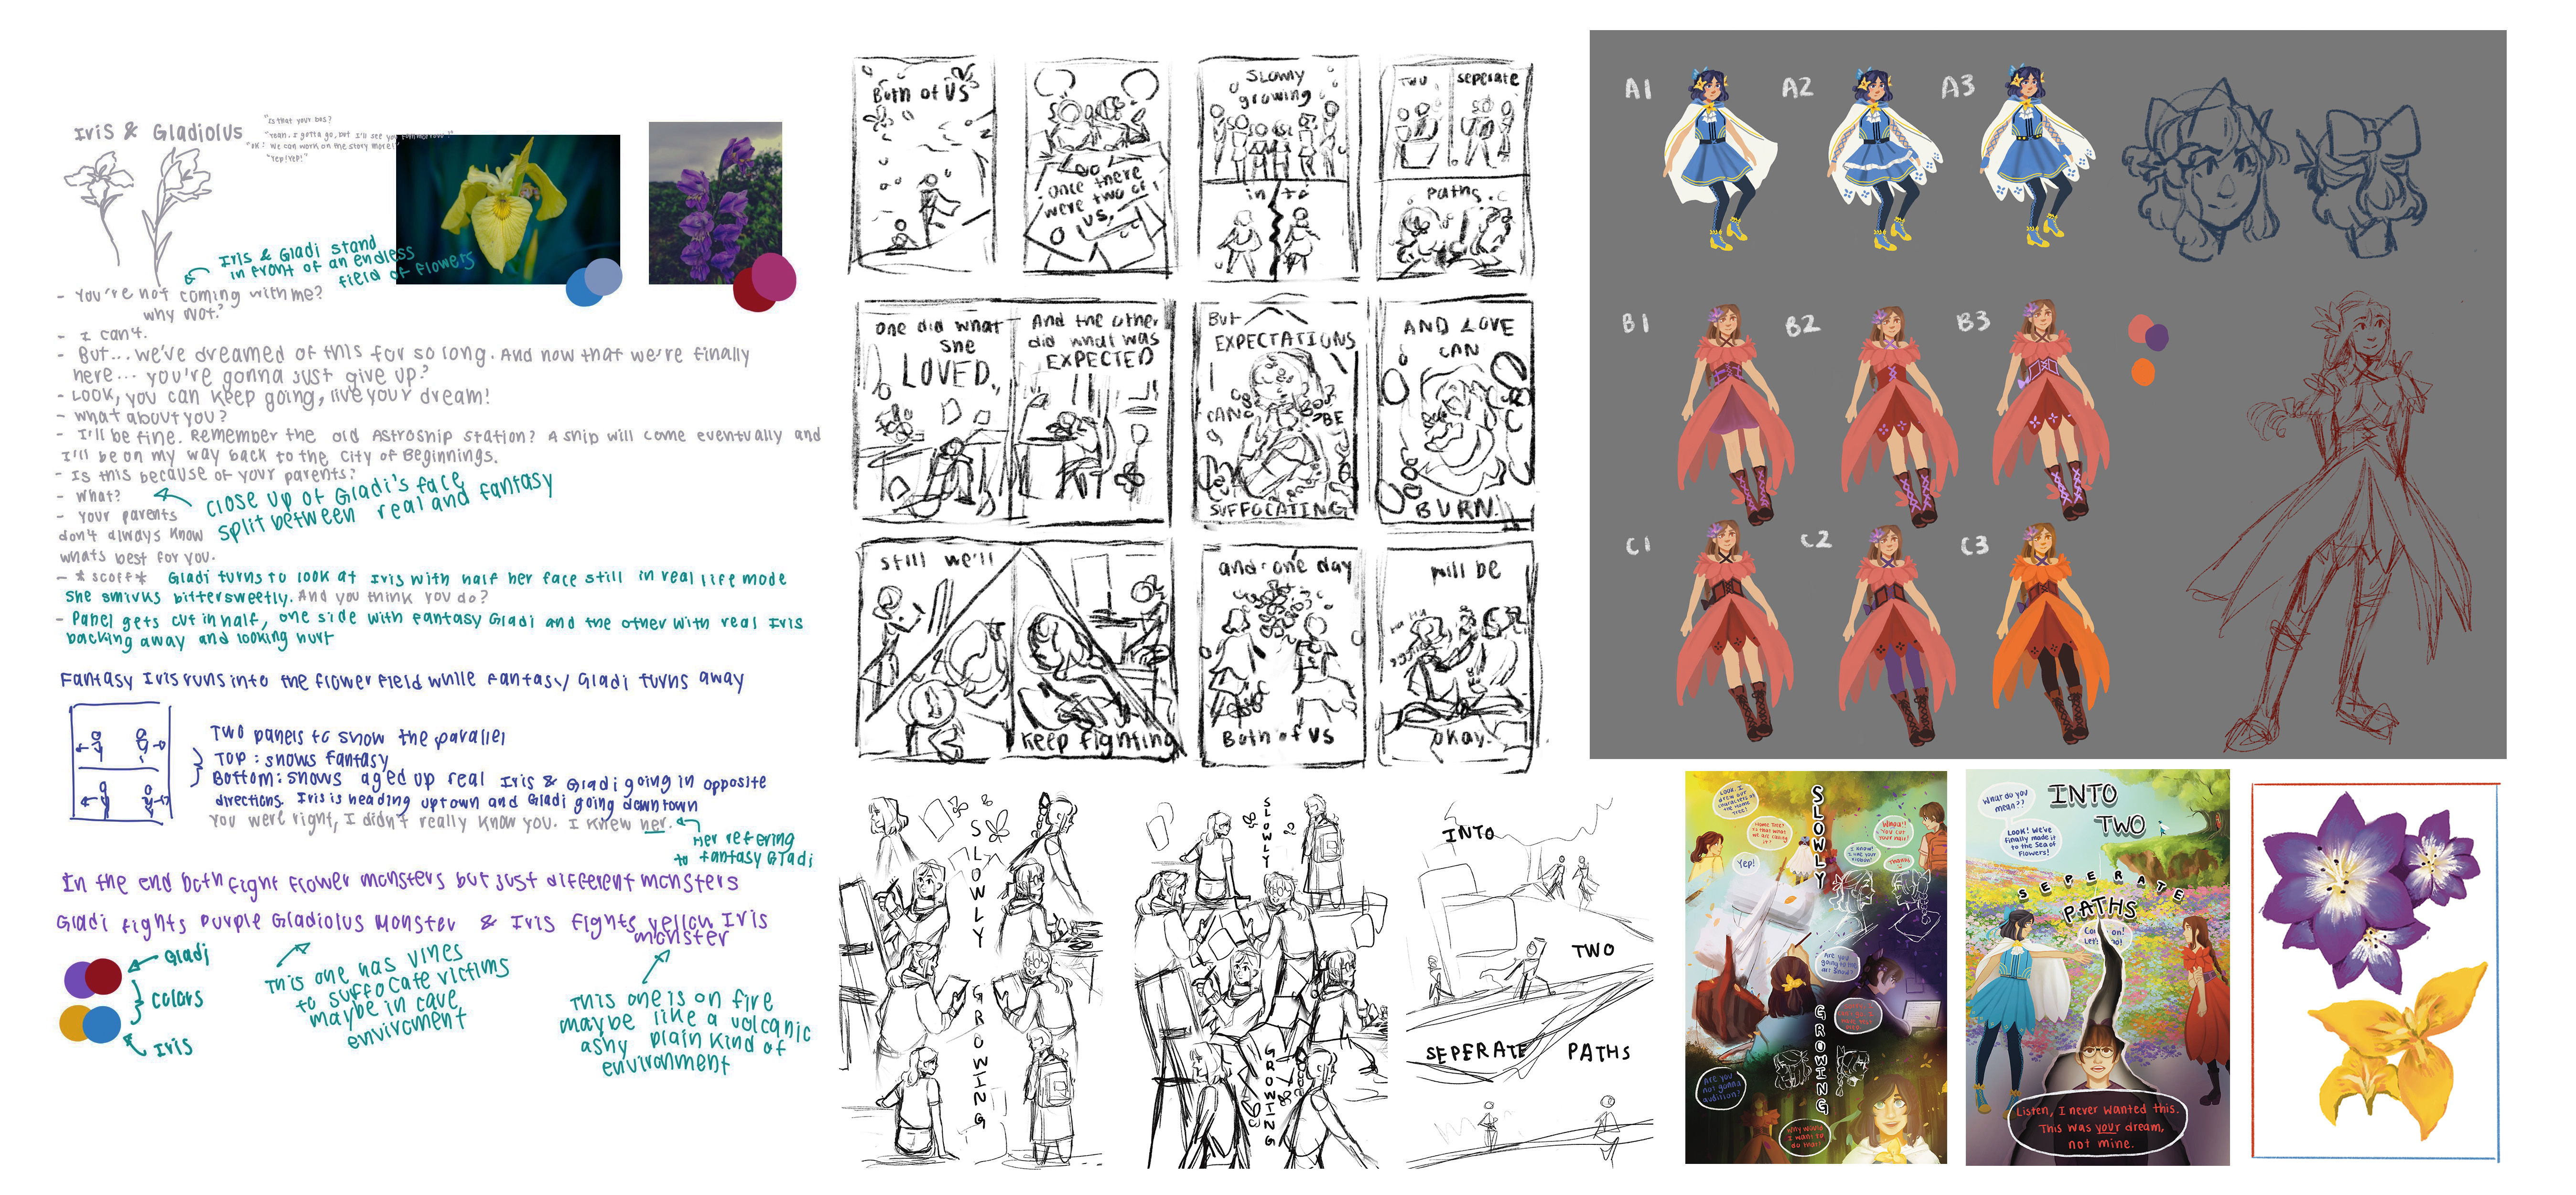 Iris & Gladiolus
"Is that your bus?
"Yeah. I gotta go, but I'll see you tomorrow!"
"OK! We can work on the story more!"
"Yep! Yep!"
Iris & Gladi stand
in front of an endless
field of flowers
- You're not coming with me?
why not?
- I can't.
- But... we've dreamed of this for so long. And now that we're finally
here... you're gonna just give up?
- Look, you can keep going, live your dream!
- What about you?
- I'll be fine. Remember the old Astroship station? A ship will come eventually and
I'll be on my way back to the City of Beginnings.
- Is this because of your parents?
- What?
close up of Gladi's face
split between real and fantasy
- Your parents
don't always know
whats best for you.
- *scoff* Gladi turns to look at Iris with half her face still in real life mode
she smirks bittersweetly. And you think you do?
- Panel gets cut in half, one side with fantasy Gladi and the other with real Iris
backing away and looking hurt
Fantasy Iris runs into the flower field while fantasy Gladi turns away
Two panels to show the parallel
Top: shows fantasy
Bottom: shows aged up real Iris & Gladi going in opposite
directions. Iris is heading uptown and Gladi going downtown
You were right, I didn't really know you. I knew her.
Her refering
to fantasy Gladi
In the end both fight flower monsters but just different monsters
Gladi fights purple Gladiolus Monster & Iris fights yellow Iris
monster
Gladi
colors
Iris
This one has vines
to suffocate victims
maybe in cave
enviroment
This one is on fire
maybe like a volcanic
ashy plain kind of
environment
Both of us
Once there
were two of
us,
Slowly
growing
into
two
seperate
paths.
one did what
she
LOVED,
And the other
did what was
EXPECTED
But
EXPECTATIONS
CAN
BE
SUFFOCATING
AND LOVE
CAN
BURN.
still we'll
keep fighting
and one day
Both of us
will be
okay.
SLOWLY
GROWING
SLOWLY
GROWING
INTO
TWO
SEPERATE PATHS
A1
A2
A3
B1
B2
B3
C1
C2
C3
SLOWLY
GROWING
Yep!
Thanks
Are you
going to the
art show?
Are you
not gonna
audition?
Why would
I want to
do that?
What do you
mean??
Look! We've
finally made it
to the Sea of
Flowers!
INTO
TWO
SEPERATE
PATHS
Listen, I never wanted this.
This was your dream,
not mine.